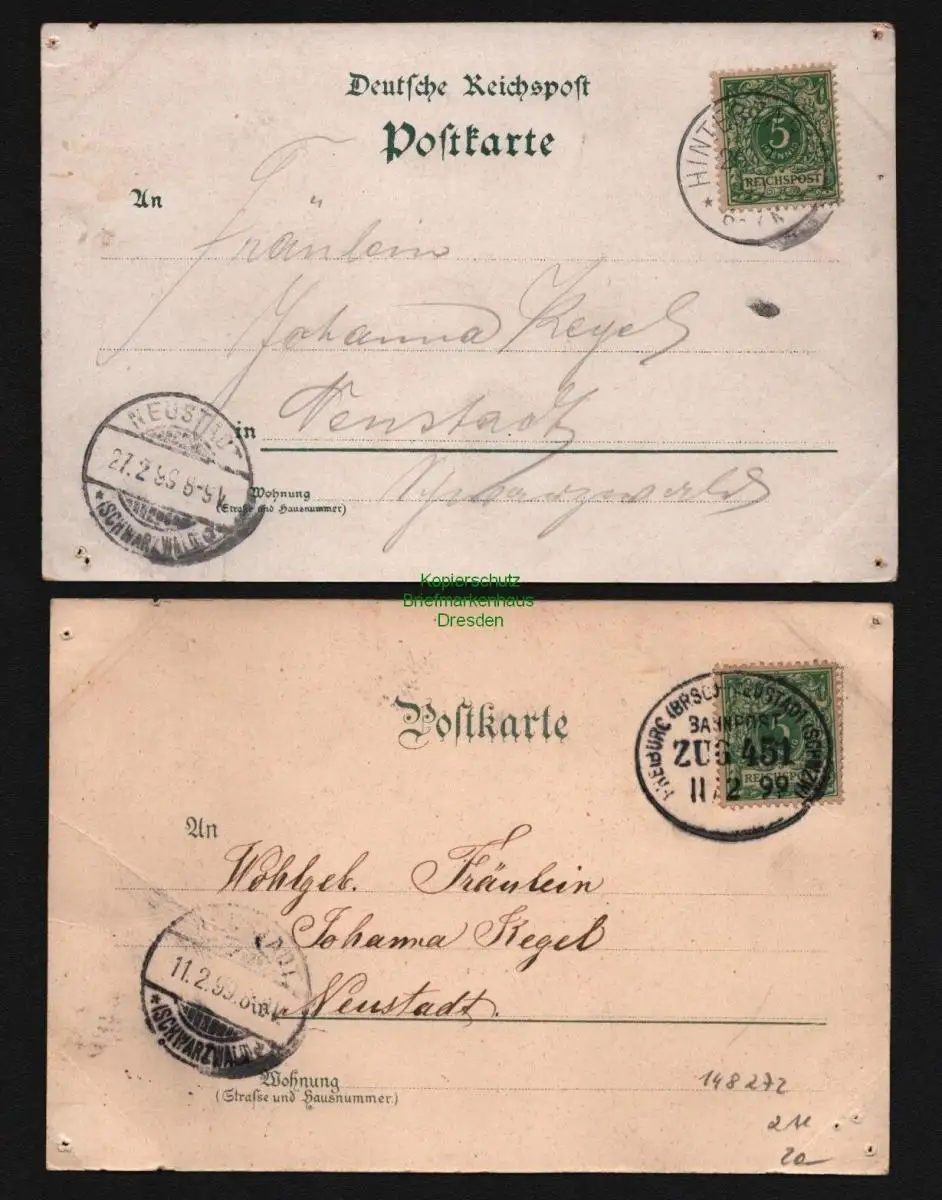 Deutsche Reichspost
Postkarte
5
REICHSPOST
HINTE
An
Fräulein
Johanna Kegel
in Neustadt
Schwarzwald
Wohnung
(Straße und Hausnummer)
NEUSTADT
27.2.99.8-9V.
* (SCHWARZWALD) *
Kopierschutz
Briefmarkenhaus
Dresden
Postkarte
FREIBURG (BRSG.) NEUSTADT (SCHWZW)
BAHNPOST
ZUG 451
11 12 99
REICHSPOST
An
Wohlgeb. Fräulein
Johanna Kegel
in Neustadt.
11.2.99.
* (SCHWARZWALD) *
Wohnung
(Straße und Hausnummer.)
148272
20